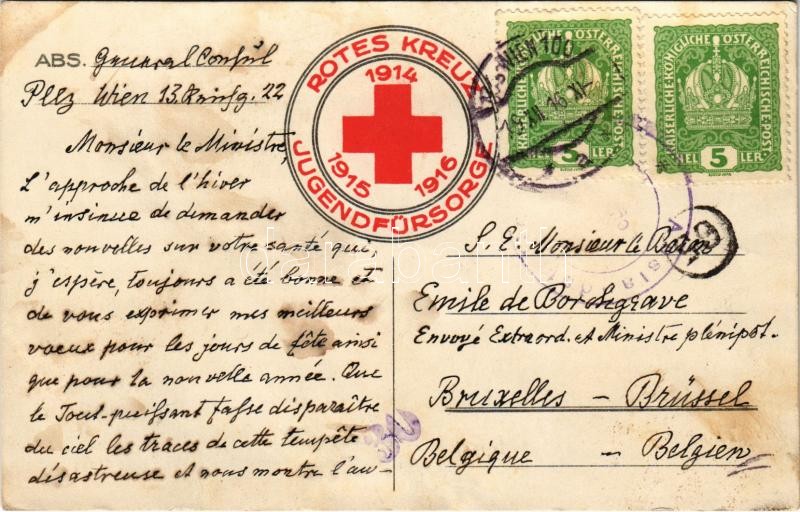 ABS. General Consul
Pelz Wien 13. 22
Monsieur le Ministre,
L'approche de l'hiver
m'insinue de demander
des nouvelles sur votre santé qui,
j'espère, toujours a été bonne et
de vous exprimer mes meilleurs
voeux pour les jours de fête ainsi
que pour la nouvelle année. Que
le Tout-puissant fasse disparaître
du ciel les traces de cette tempête
désastreuse et nous montre l'au-
ROTES KREUZ
1914
1915
1916
JUGENDFÜRSORGE
WIEN 100
KAISERLICHE KÖNIGLICHE ÖSTERREICHISCHE POST
HELLER
5
KAISERLICHE KÖNIGLICHE ÖSTERREICHISCHE POST
HELLER
5
S. E. Monsieur le Baron
Emile de Borchgrave
Envoyé Extraord. et Ministre plénipot.
Bruxelles – Brüssel
Belgique – Belgien
30
darabanth